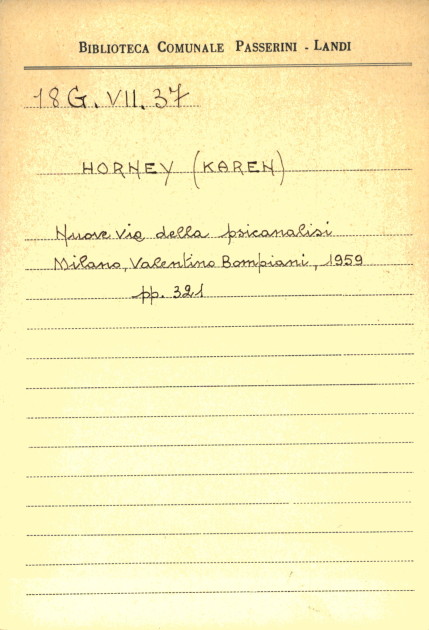 BIBLIOTECA COMUNALE PASSERINI - LANDI
18 G. VII. 37
HORNEY (KAREN)
Nuove vie della psicanalisi
Milano, Valentino Bompiani, 1959
pp. 321